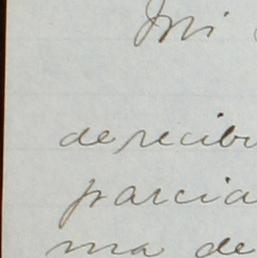 Mi
de recib
parcia
ma de